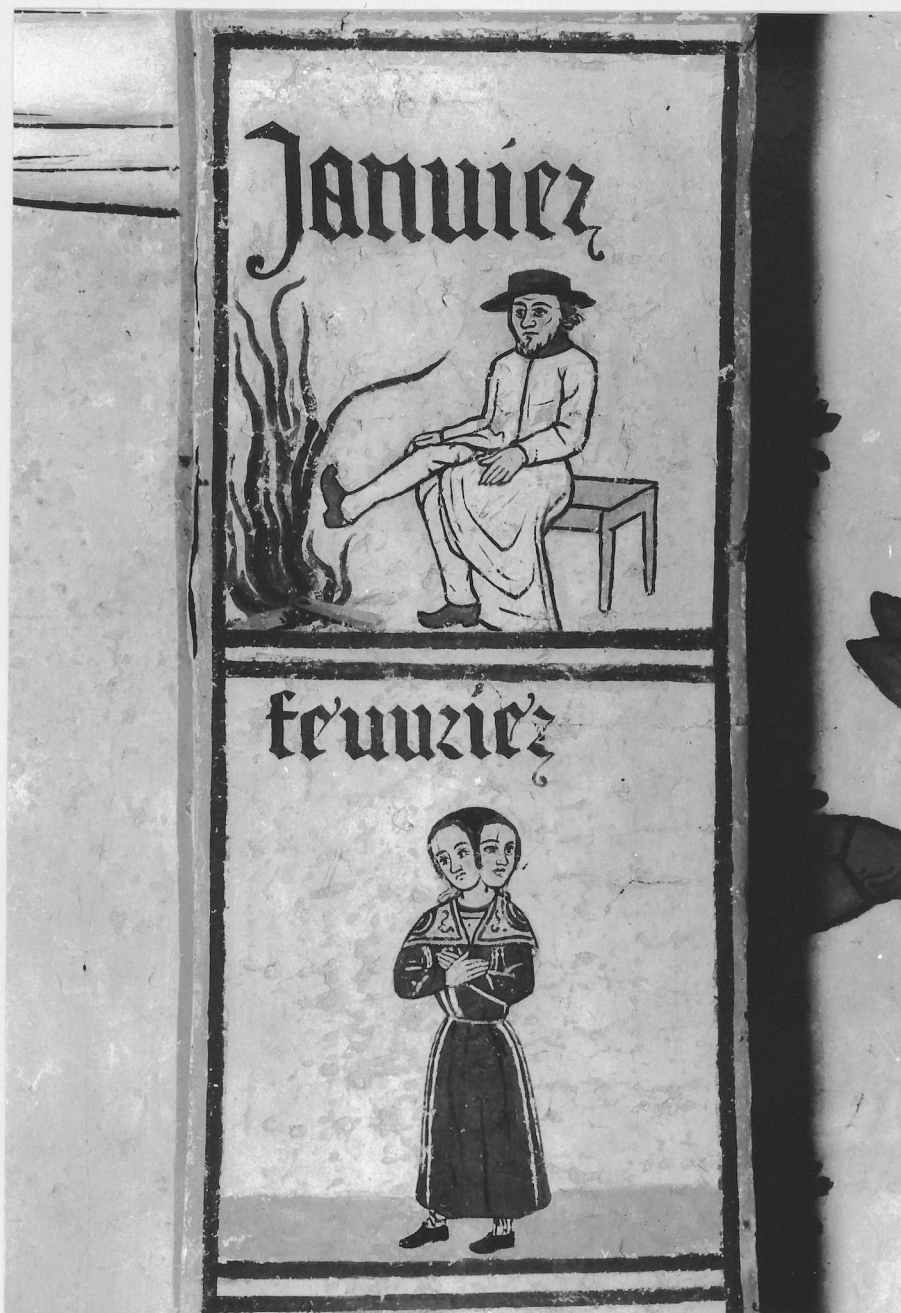 Januier
feuurier